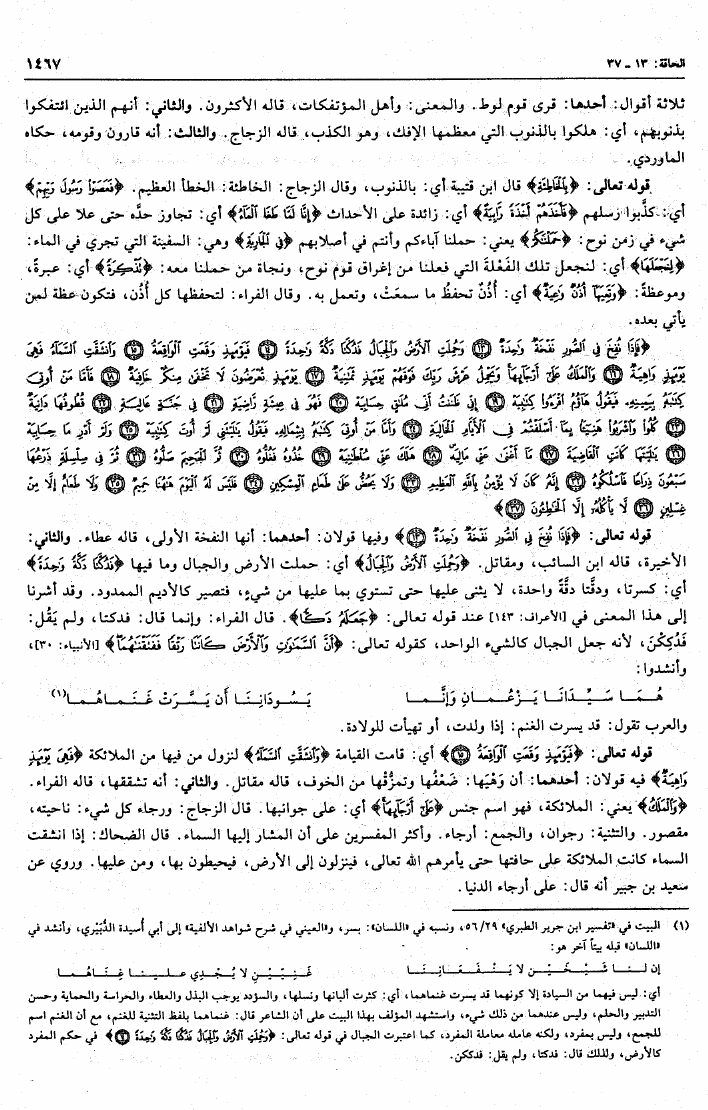 الحاقة: ١٣ ـ ٣٧
١٤٦٧
ثلاثة أقوال: أحدها: قرى قوم لوط. والمعنى: وأهل المؤتفكات، قاله الأكثرون. والثاني: أنهم الذين ائتفكوا
بذنوبهم، أي: هلكوا بالذنوب التي معظمها الإفك، وهو الكذب، قاله الزجاج. والثالث: أنه قارون وقومه، حكاه
الماوردي.
قوله تعالى: ﴿بِالْخَاطِئَةِ﴾ قال ابن قتيبة أي: بالذنوب، وقال الزجاج: الخاطئة: الخطأ العظيم. ﴿فَعَصَوْا رَسُولَ رَبِّهِمْ﴾
أي: كذَّبوا رسلهم ﴿فَأَخَذَهُمْ أَخْذَةً رَابِيَةً﴾ أي: زائدة على الأحداث ﴿إِنَّا لَمَّا طَغَا الْمَاءُ﴾ أي: تجاوز حدَّه حتى علا على كل
شيء في زمن نوح: ﴿حَمَلْنَاكُمْ﴾ يعني: حملنا آباءكم وأنتم في أصلابهم ﴿فِي الْجَارِيَةِ﴾ وهي: السفينة التي تجري في الماء:
﴿لِنَجْعَلَهَا﴾ أي: لنجعل تلك الفَعْلَة التي فعلنا من إغراق قوم نوح، ونجاة من حملنا معه: ﴿تَذْكِرَةً﴾ أي: عبرةً،
وموعظةً: ﴿وَتَعِيَهَا أُذُنٌ وَاعِيَةٌ﴾ أي: أُذُنٌ تحفظُ ما سمعَتْ، وتعمل به. وقال الفراء: لتحفظها كل أُذُن، فتكون عظة لمن
يأتي بعده.
﴿فَإِذَا نُفِخَ فِي الصُّورِ نَفْخَةٌ وَاحِدَةٌ ۝١٣ وَحُمِلَتِ الْأَرْضُ وَالْجِبَالُ فَدُكَّتَا دَكَّةً وَاحِدَةً ۝١٤ فَيَوْمَئِذٍ وَقَعَتِ الْوَاقِعَةُ ۝١٥ وَانشَقَّتِ السَّمَاءُ فَهِيَ
يَوْمَئِذٍ وَاهِيَةٌ ۝١٦ وَالْمَلَكُ عَلَى أَرْجَائِهَا وَيَحْمِلُ عَرْشَ رَبِّكَ فَوْقَهُمْ يَوْمَئِذٍ ثَمَانِيَةٌ ۝١٧ يَوْمَئِذٍ تُعْرَضُونَ لَا تَخْفَى مِنكُمْ خَافِيَةٌ ۝١٨ فَأَمَّا مَنْ أُوتِيَ
كِتَابَهُ بِيَمِينِهِ فَيَقُولُ هَاؤُمُ اقْرَءُوا كِتَابِيَهْ ۝١٩ إِنِّي ظَنَنتُ أَنِّي مُلَاقٍ حِسَابِيَهْ ۝٢٠ فَهُوَ فِي عِيشَةٍ رَاضِيَةٍ ۝٢١ فِي جَنَّةٍ عَالِيَةٍ ۝٢٢ قُطُوفُهَا دَانِيَةٌ
۝٢٣ كُلُوا وَاشْرَبُوا هَنِيئًا بِمَا أَسْلَفْتُمْ فِي الْأَيَّامِ الْخَالِيَةِ ۝٢٤ وَأَمَّا مَنْ أُوتِيَ كِتَابَهُ بِشِمَالِهِ فَيَقُولُ يَالَيْتَنِي لَمْ أُوتَ كِتَابِيَهْ ۝٢٥ وَلَمْ أَدْرِ مَا حِسَابِيَهْ
۝٢٦ يَالَيْتَهَا كَانَتِ الْقَاضِيَةَ ۝٢٧ مَا أَغْنَى عَنِّي مَالِيَهْ ۝٢٨ هَلَكَ عَنِّي سُلْطَانِيَهْ ۝٢٩ خُذُوهُ فَغُلُّوهُ ۝٣٠ ثُمَّ الْجَحِيمَ صَلُّوهُ ۝٣١ ثُمَّ فِي سِلْسِلَةٍ ذَرْعُهَا
سَبْعُونَ ذِرَاعًا فَاسْلُكُوهُ ۝٣٢ إِنَّهُ كَانَ لَا يُؤْمِنُ بِاللَّهِ الْعَظِيمِ ۝٣٣ وَلَا يَحُضُّ عَلَى طَعَامِ الْمِسْكِينِ ۝٣٤ فَلَيْسَ لَهُ الْيَوْمَ هَاهُنَا حَمِيمٌ ۝٣٥ وَلَا طَعَامٌ إِلَّا مِنْ
غِسْلِينٍ ۝٣٦ لَا يَأْكُلُهُ إِلَّا الْخَاطِئُونَ ۝٣٧﴾
قوله تعالى: ﴿فَإِذَا نُفِخَ فِي الصُّورِ نَفْخَةٌ وَاحِدَةٌ ۝١٣﴾ وفيها قولان: أحدهما: أنها النفخة الأولى، قاله عطاء. والثاني:
الأخيرة، قاله ابن السائب، ومقاتل. ﴿وَحُمِلَتِ الْأَرْضُ وَالْجِبَالُ﴾ أي: حملت الأرض والجبال وما فيها ﴿فَدُكَّتَا دَكَّةً وَاحِدَةً﴾
أي: كسرتا، ودقَّتا دقَّةً واحدة، لا يثنى عليها حتى تستوي بما عليها من شيءٍ، فتصير كالأديم الممدود. وقد أشرنا
إلى هذا المعنى في [الأعراف: ١٤٣] عند قوله تعالى: ﴿جَعَلَهُ دَكًّا﴾. قال الفراء: وإنما قال: فدكتا، ولم يَقُل:
فَدُكِكْنَ، لأنه جعل الجبال كالشيء الواحد، كقوله تعالى: ﴿أَنَّ السَّمَاوَاتِ وَالْأَرْضَ كَانَتَا رَتْقًا فَفَتَقْنَاهُمَا﴾ [الأنبياء: ٣٠]،
وأنشدوا:
هُمَا سَيِّدَانَا يَزْعُمَانِ وَإِنَّمَا يَسُودَانِنَا أَن يَسَّرَتْ غَنَمَاهُمَا(١)
والعرب تقول: قد يسرت الغنم: إذا ولدت، أو تهيأت للولادة.
قوله تعالى: ﴿فَيَوْمَئِذٍ وَقَعَتِ الْوَاقِعَةُ ۝١٥﴾ أي: قامت القيامة ﴿وَانشَقَّتِ السَّمَاءُ﴾ لنزول من فيها من الملائكة ﴿فَهِيَ يَوْمَئِذٍ
وَاهِيَةٌ﴾ فيه قولان: أحدهما: أن وَهْيَها: ضَعْفُها وتمزُّقها من الخوف، قاله مقاتل. والثاني: أنه تشققها، قاله الفراء.
﴿وَالْمَلَكُ﴾ يعني: الملائكة، فهو اسم جنس ﴿عَلَى أَرْجَائِهَا﴾ أي: على جوانبها. قال الزجاج: ورجاء كل شيء: ناحيته،
مقصور. والتثنية: رجوان، والجمع: أرجاء. وأكثر المفسرين على أن المشار إليها السماء. قال الضحاك: إذا انشقت
السماء كانت الملائكة على حافتها حتى يأمرهم الله تعالى، فينزلون إلى الأرض، فيحيطون بها، ومن عليها. وروي عن
سعيد بن جبير أنه قال: على أرجاء الدنيا.
(١) البيت في «تفسير ابن جرير الطبري» ٥٦/٢٩، ونسبه في «اللسان»: يسر، و«العيني في شرح شواهد الألفية» إلى أبي أُسيدة الدُّبَيْري، وأنشد في
«اللسان» قبله بيتاً آخر هو:
إن لـنـا شَـيْـخَـيْـنِ لا يَـنْـفَـعَـانِـنَـا غَـنِـيَّـيْـنِ لا يُـجْـدِي عـلـيـنـا غِـنَـاهُـمـا
أي: ليس فيهما من السيادة إلا كونهما قد يسرت غنماهما، أي: كثرت ألبانها ونسلها، والسؤدد يوجب البذل والعطاء والحراسة والحماية وحسن
التدبير والحلم، وليس عندهما من ذلك شيء، واستشهد المؤلف بهذا البيت على أن الشاعر قال: غنماهما بلفظ التثنية للغنم، مع أن الغنم اسم
للجمع، وليس بمفرد، ولكنه عامله معاملة المفرد، كما اعتبرت الجبال في قوله تعالى: ﴿وَحُمِلَتِ الْأَرْضُ وَالْجِبَالُ فَدُكَّتَا دَكَّةً وَاحِدَةً ۝١٤﴾ في حكم المفرد
كالأرض، ولذلك قال: فدكتا، ولم يقل: فدككن.